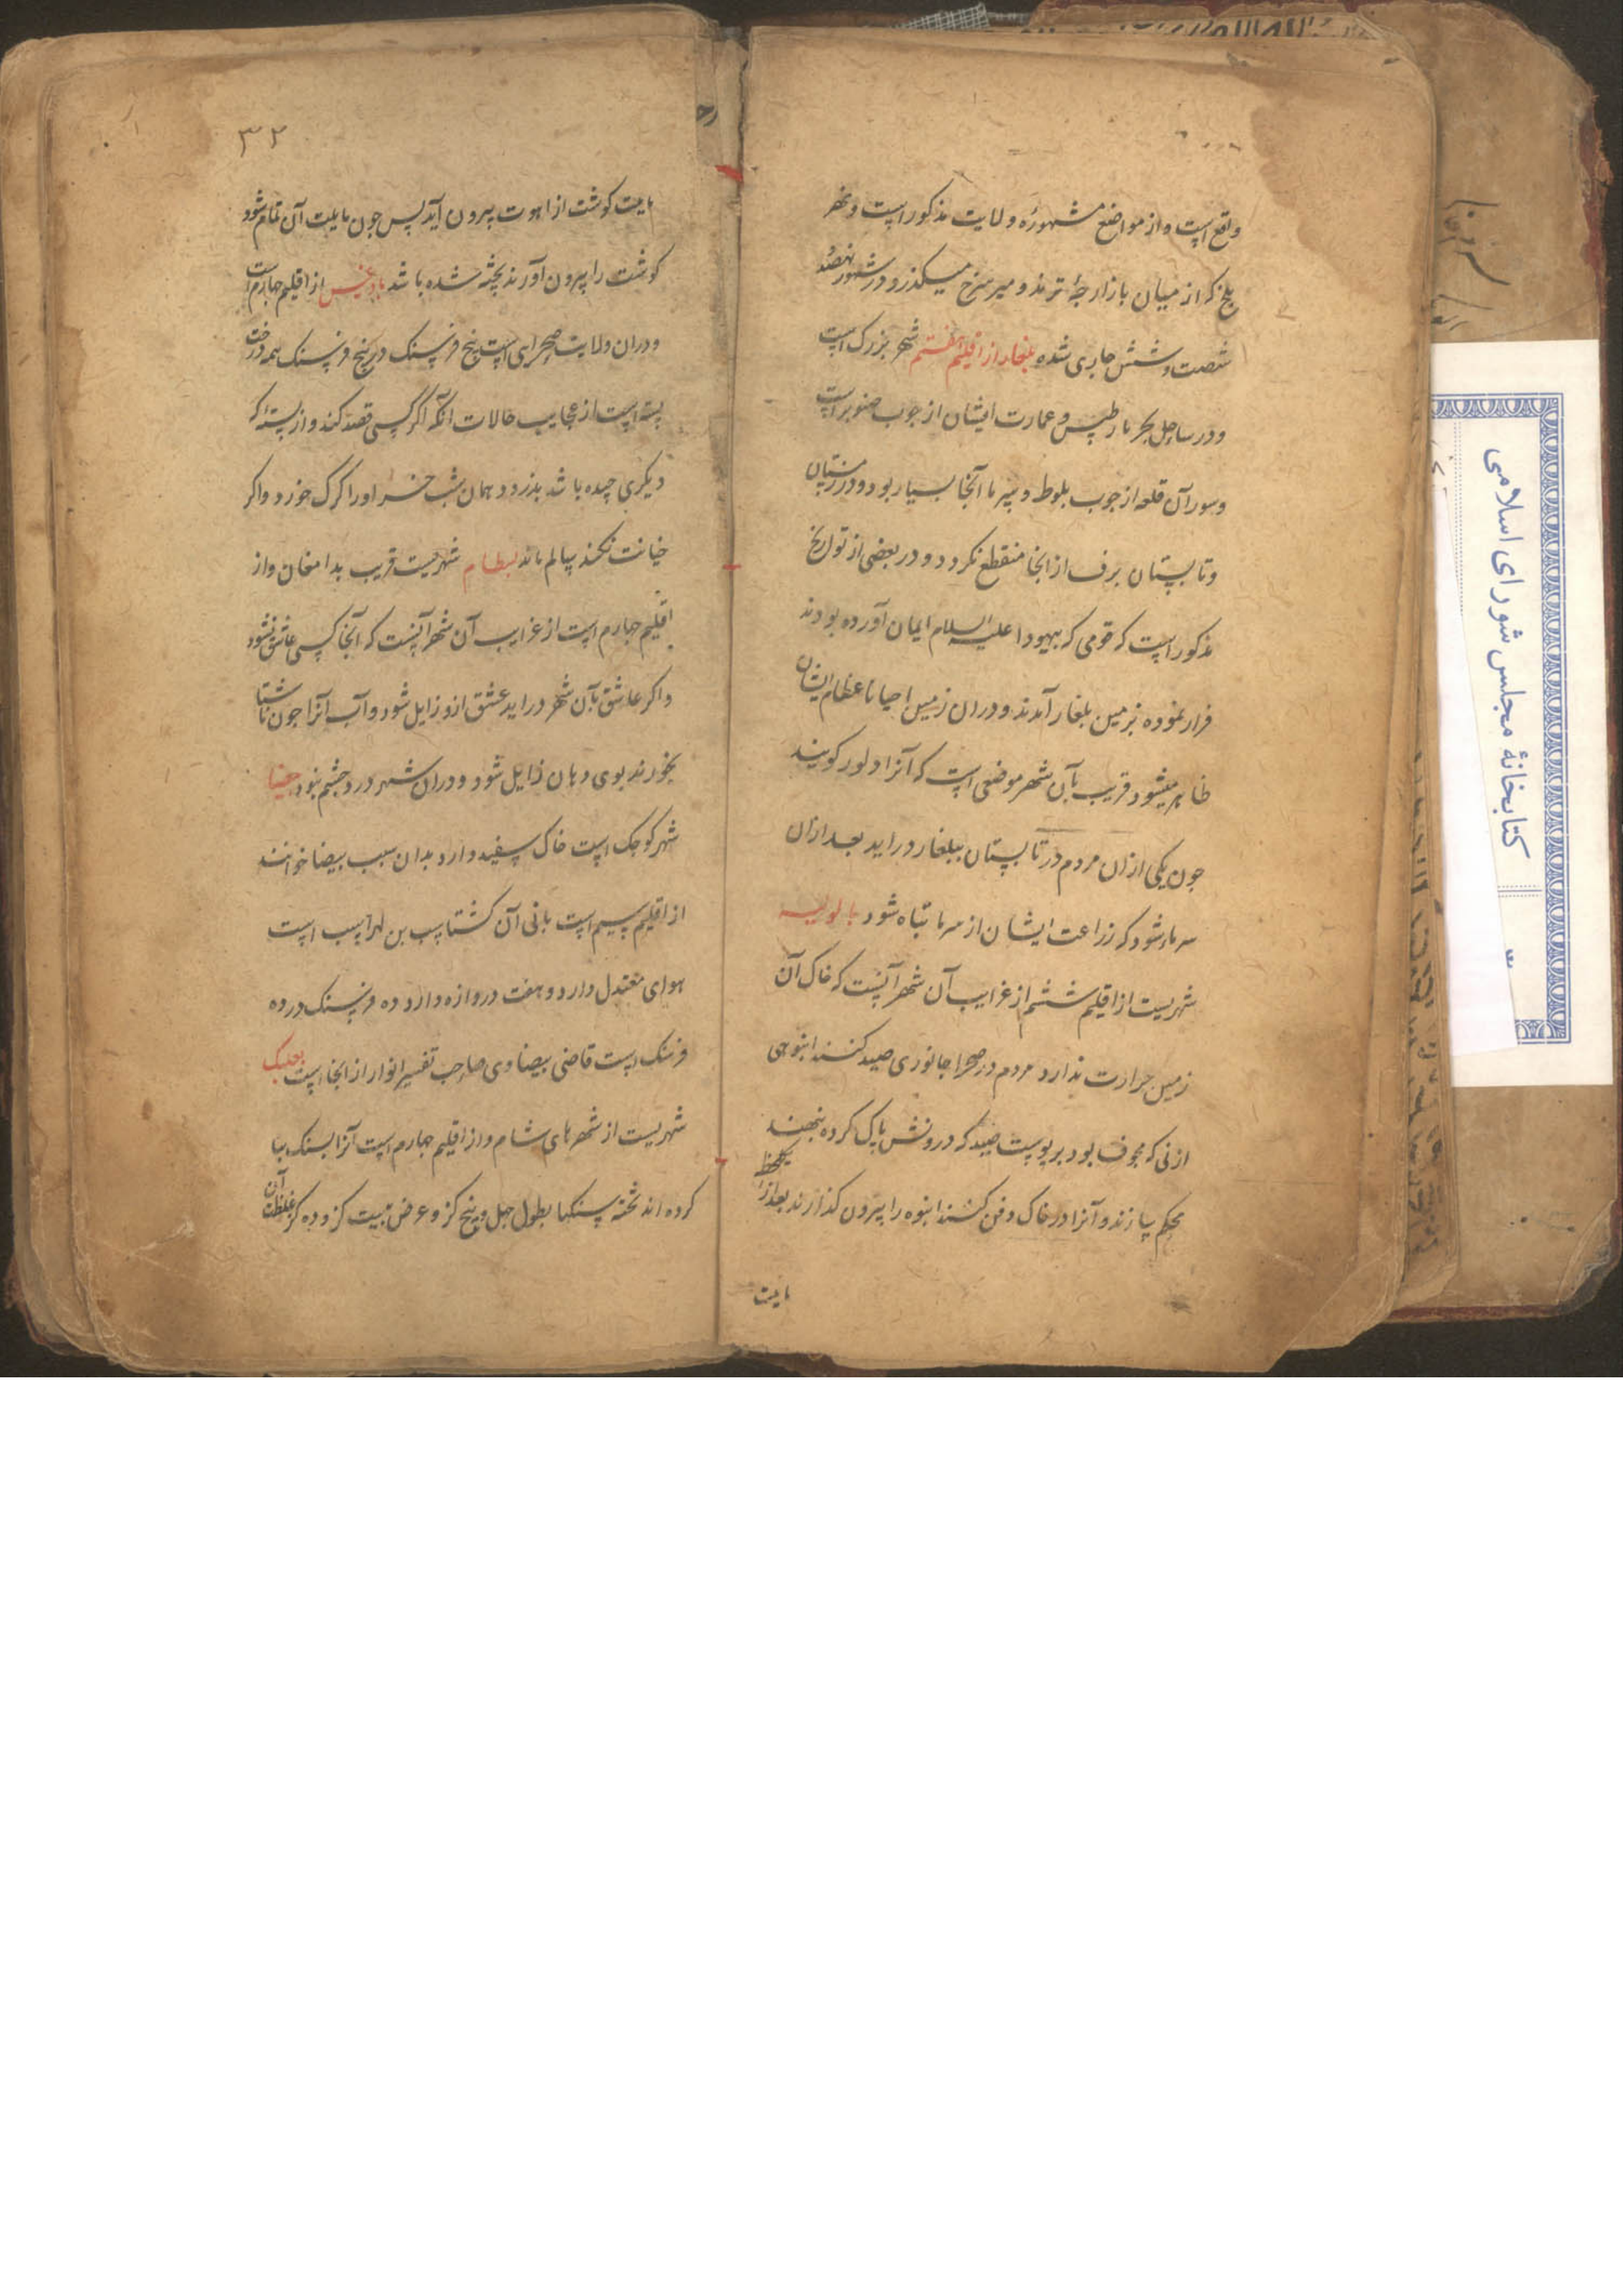 واقع است و از مواضع مشهوره ولایت مذکور است و نهر
بلخ که از میان بازارچه ترمذ و میر سرخ میکذرد در شهور نهصد
شصت و شش جاری شده بلغار از اقلیم هفتم شهر بزرک است
و در ساحل بحر مارطیس و عمارت ایشان از چوب صنوبر است
و سور آن قلعه از چوب بلوط و سرما آنجا بسیار بود و در زمستان
و تابستان برف از انجا منقطع نکردد و در بعضی از تواریخ
مذکور است که قومی که بهود علیه السلام ایمان آورده بودند
فرار نموده بزمین بلغار آمدند و دران زمین احیانا عظام ایشان
ظاهر میشود قریب بآن شهر موضعی است که آنرا ولور کویند
جون یکی ازان مردم در تابستان ببلغار دراید بعد ازان
سرما شود که زراعت ایشان از سرما تباه شود بالولیه
شهریست از اقلیم ششم از غرایب آن شهر آنست که خاک آن
زمین حرارت ندارد مردم در صحرا جانوری صید کنند انبوبی
از نی که مجوف بود بر پوست صید که درونش پاک کرده بنهند
محکم سازند و آنرا در خاک دفن کنند انبوه را بیرون کذارند بعد ازان
یکلحظه
مایت
۳۲
مایت کوشت از انبوب بیرون آید پس جون مایت آن تمام شود
کوشت را بیرون آورند پخته شده باشد بادغیس از اقلیم چهارم است
و دران ولایت صحرایی است پنج فرسنک در پنج فرسنک همه درخت
پسته است از عجایب حالات آنکه اکر کسی قصد کند و از پسته که
دیکری چیده باشد بدزدد همان شب خر او را کرک خورد و اکر
خیانت نکند سالم ماند بسطام شهریست قریب بدامغان و از
اقلیم چهارم است از غرایب آن شهر آنست که آنجا کسی عاشق نشود
و اکر عاشق بآن شهر دراید عشق ازو زایل شود و آب آنرا جون ناشتا
بخورند بوی دهان زایل شود و دران شهر درد چشم نبود بیضا
شهر کوجک است خاک سفید دارد بدان سبب بیضا خوانند
از اقلیم سیم است بانی آن کشتاسب بن لهراسب است
هوای معتدل دارد و هفت دروازه دارد ده فرسنک در ده
فرسنک است قاضی بیضاوی صاحب تفسیر انوار از انجا است بعلبک
شهریست از شهرهای شام و از اقلیم چهارم است آنرا بسنک بنا
کرده اند تخته سنکها بطول چهل و پنج کز و عرض بیست کز و ده کز غلظت آن
کتابخانهٔ مجلس شورای اسلامی